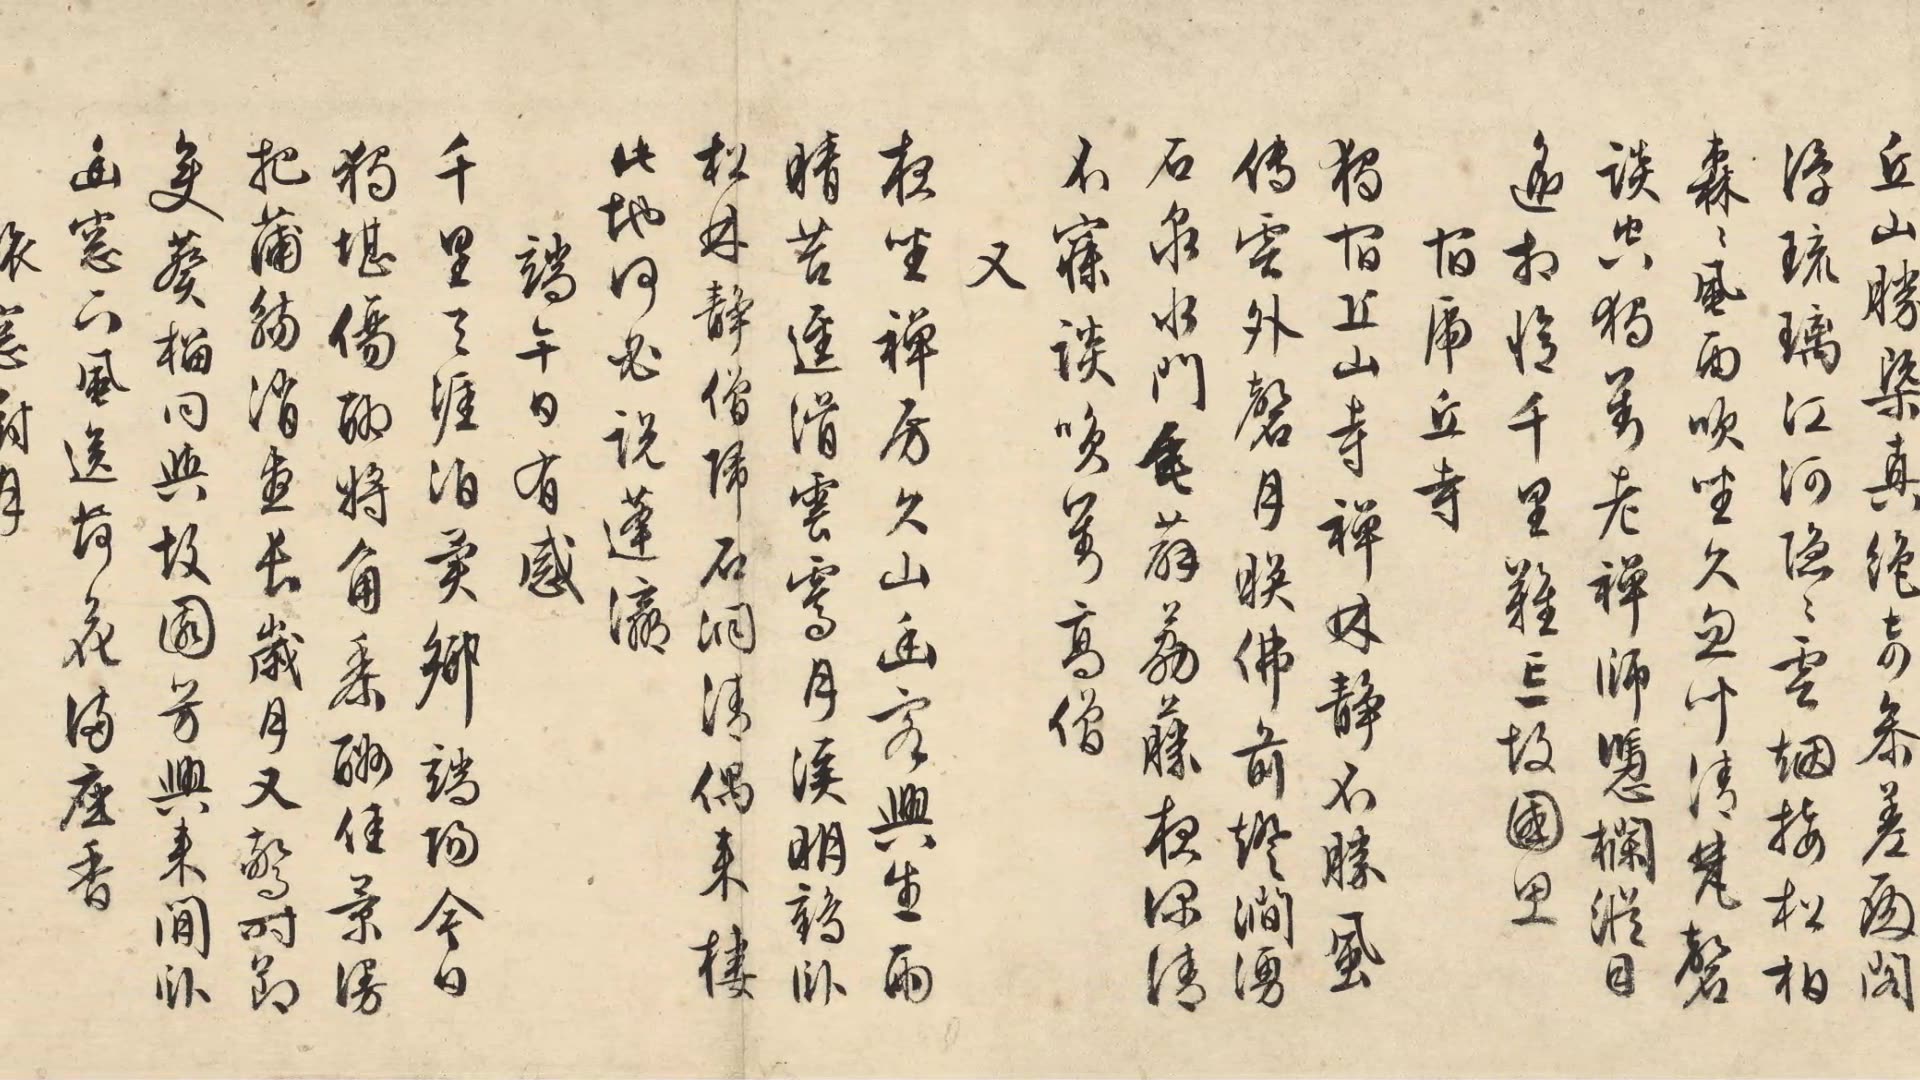 丘山勝槩真絕奇參差西閣
浮琉璃江河隱〻雲烟接松柏
森〻風雨吹坐久忽聞清梵磬
談空獨羡老禪師憑欄縱目
遙相憶千里難忘故國思
宿虎丘寺
獨宿丘山寺禪林靜不勝風
傳雲外磬月映佛前燈澗湧
石泉水門垂薜荔藤夜深清
不寐談笑羡高僧
又
夜坐禪房久山幽客興生雨
晴苔逕滑雲霽月溪明鶴臥
松林靜僧歸石洞清偶來棲
此地何必說蓬瀛
端午日有感
千里天涯泊異鄉端陽今日
獨堪傷聊將角黍酬佳景漫
把蒲觴消晝長歲月又驚時節
變葵榴同與故園芳興來閒臥
幽窓下風送荷花滿座香
窓對月